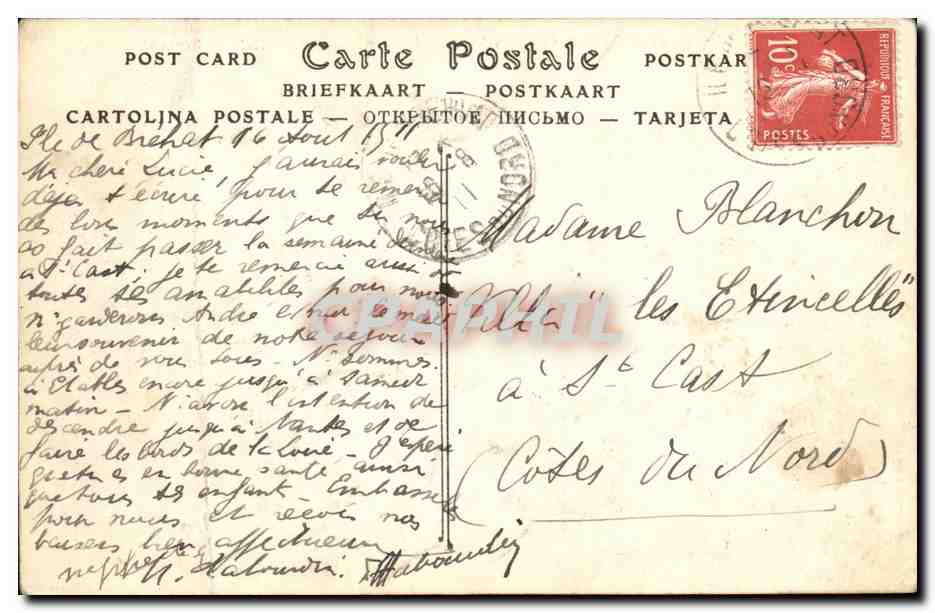 POST CARD Carte Postale POSTKAR
BRIEFKAART — POSTKAART
CARTOLINA POSTALE — ОТКРЫТОЕ ПИСЬМО — TARJETA
10c
REPUBLIQUE FRANÇAISE
POSTES
COTES DU NORD
Ile de Brehat 16 Aout 1911
Ma chere Lucie, j'aurais voulu
déja t'écrire pour te remer
des bons moments que tu nous
as fait passer la semaine
à St Cast. je te remercie aussi de
toutes tes amabilités pour nous
n. garderons André et moi le meil
leur souvenir de notre séjour
auprès de vous tous - N. sommes
à Etables encore jusqu'à samedi
matin - N. avons l'intention de
descendre jusqu'à Nantes et de
faire les bords de la Loire - J'espère
que tu es en bonne santé ainsi
que tous tes enfants - Embasse
pour nous et reçois nos
baisers bien affectueux
Madame Blanchon
Villa "les Etincelles"
à St Cast
(Côtes du Nord)
CPAPHIL